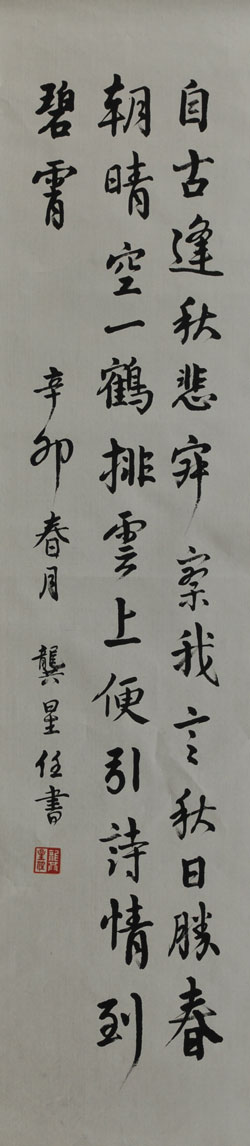 自古逢秋悲寂寥我言秋日勝春
朝晴空一鶴排雲上便引詩情到
碧霄 辛卯春月 龔星任書